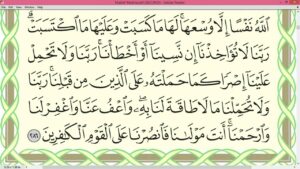 ٱللَّهُ نَفْسًا إِلَّا وُسْعَهَا ۚ لَهَا مَا كَسَبَتْ وَعَلَيْهَا مَا ٱكْتَسَبَتْ ۗ
رَبَّنَا لَا تُؤَاخِذْنَآ إِن نَّسِينَآ أَوْ أَخْطَأْنَا ۚ رَبَّنَا وَلَا تَحْمِلْ
عَلَيْنَآ إِصْرًا كَمَا حَمَلْتَهُۥ عَلَى ٱلَّذِينَ مِن قَبْلِنَا ۚ رَبَّنَا
وَلَا تُحَمِّلْنَا مَا لَا طَاقَةَ لَنَا بِهِۦ ۖ وَٱعْفُ عَنَّا وَٱغْفِرْ لَنَا
وَٱرْحَمْنَآ ۚ أَنتَ مَوْلَىٰنَا فَٱنصُرْنَا عَلَى ٱلْقَوْمِ ٱلْكَٰفِرِينَ ٢٨٦